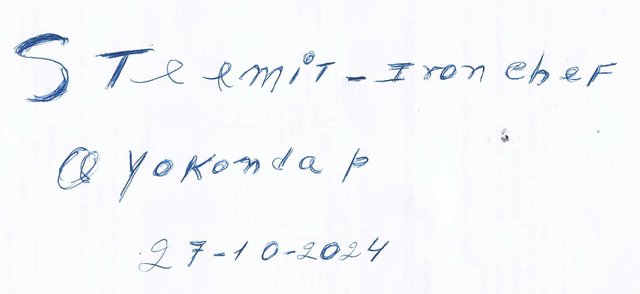 STeemiT-Ironchef
@yokondap
27-10-2024